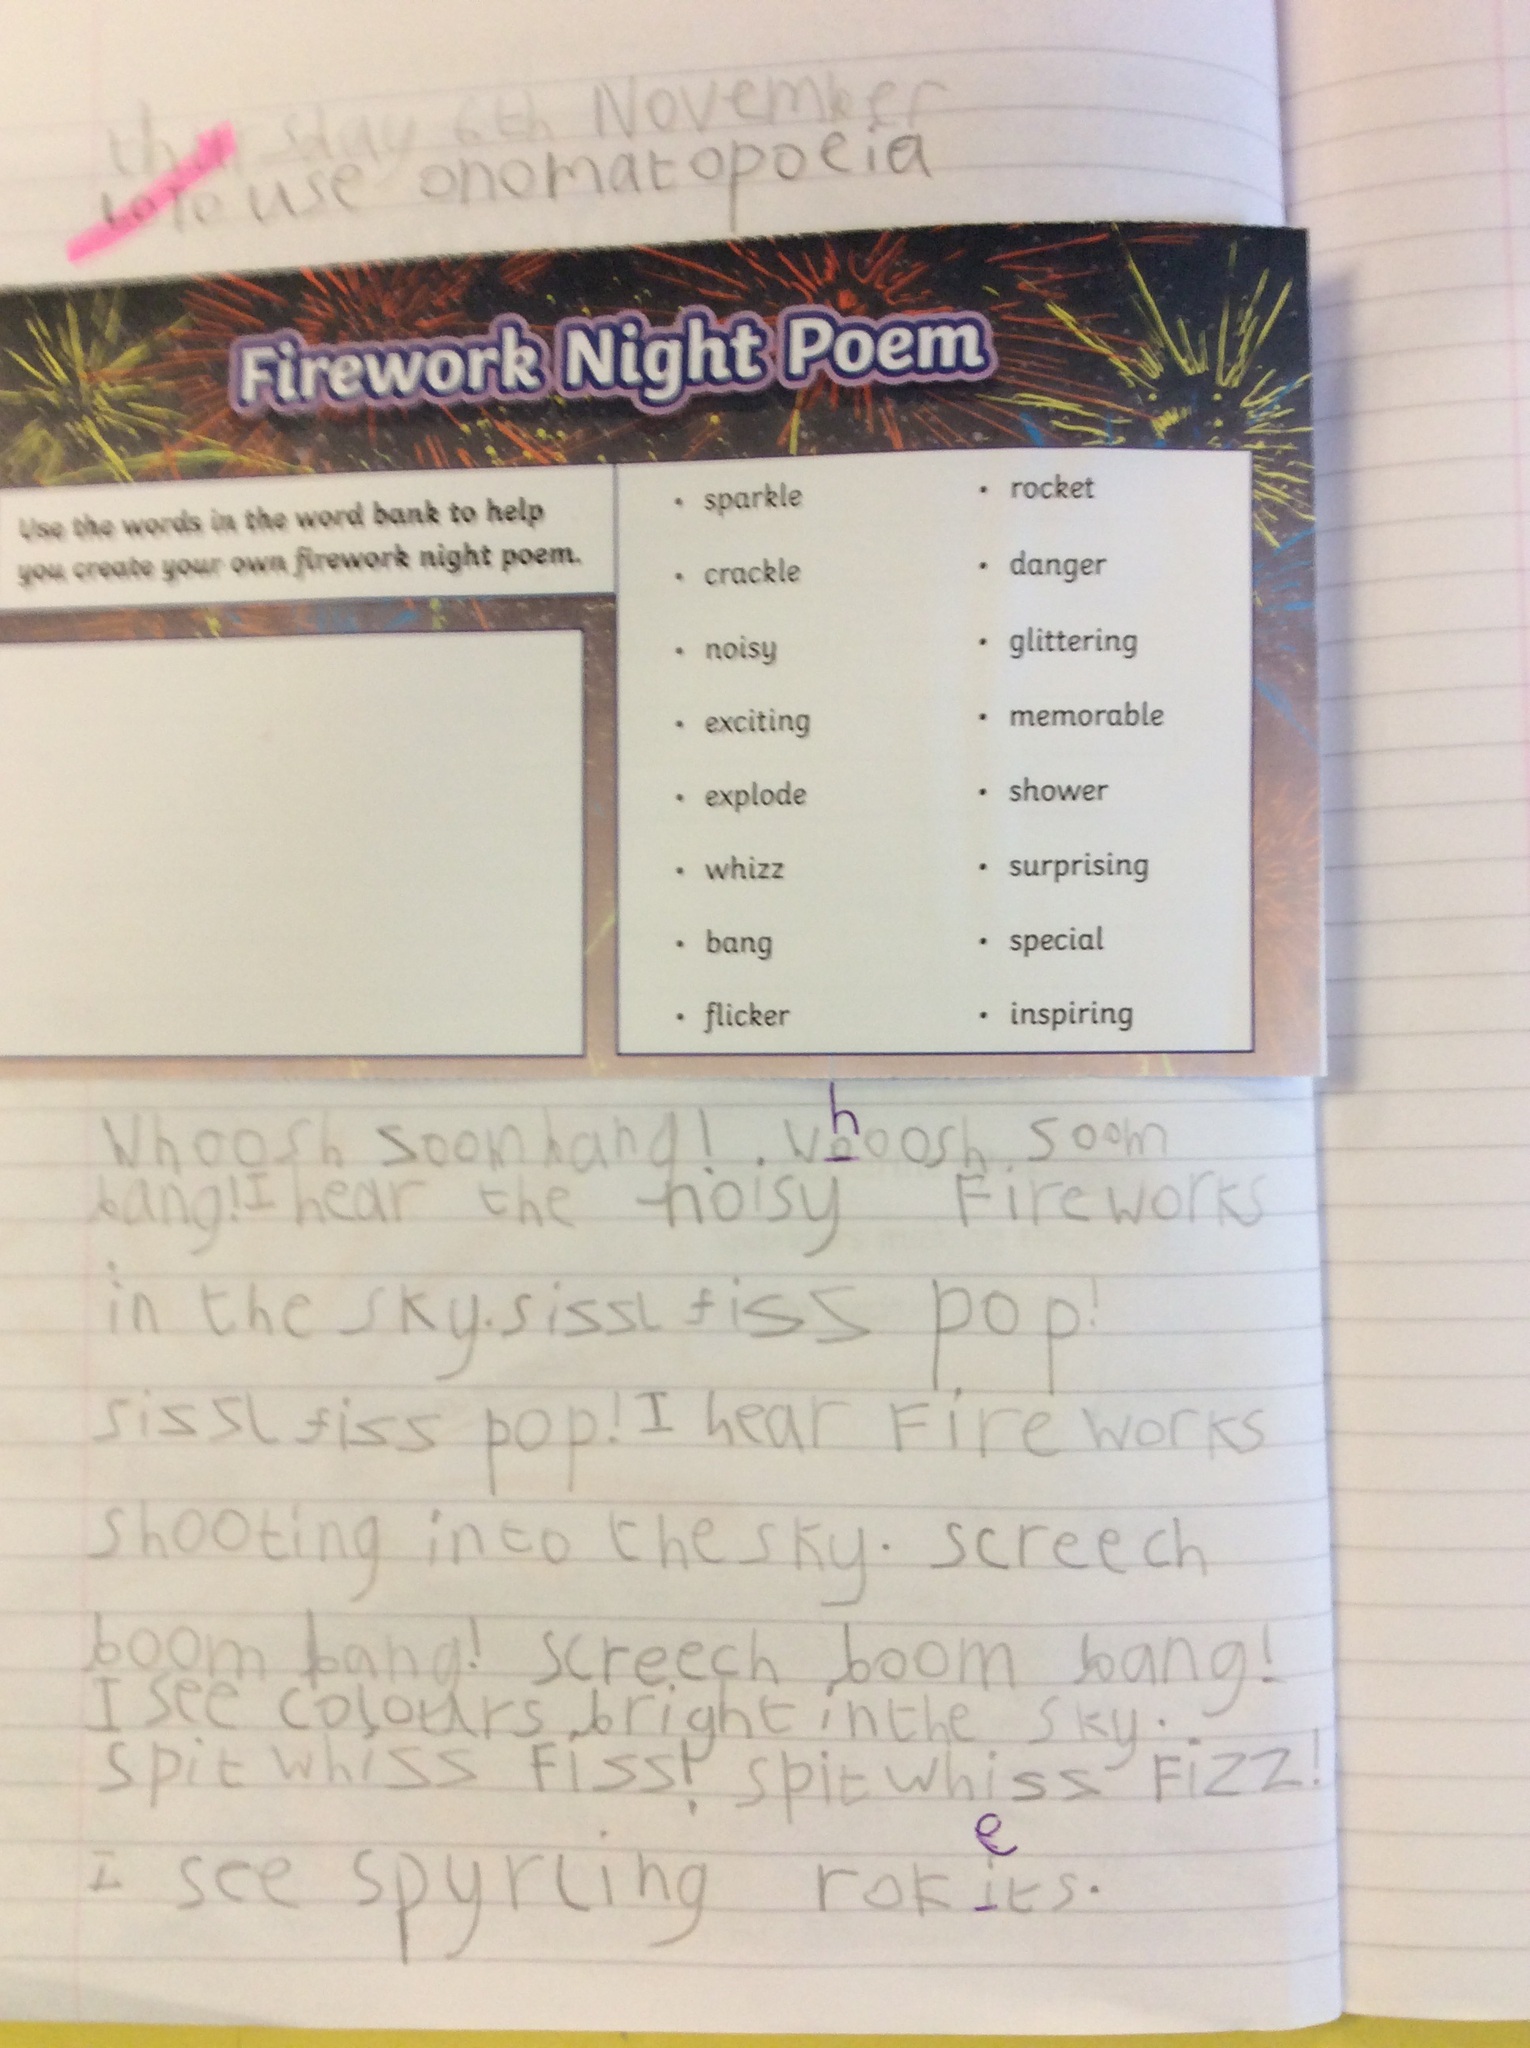 thursday 6th November
to use onomatopoeia
Firework Night Poem
Use the words in the word bank to help
you create your own firework night poem.
• sparkle
• crackle
• noisy
• exciting
• explode
• whizz
• bang
• flicker
• rocket
• danger
• glittering
• memorable
• shower
• surprising
• special
• inspiring
h
Whoosh soom bang! . Woosh soom
bang! I hear the noisy Fireworks
in the sky. sissl fiss pop!
sissl fiss pop! I hear Fire works
shooting into the sky. screech
boom bang! screech boom bang!
I see colours bright in the sky.
spit whiss Fiss! spit whiss Fizz!
e
I see spyrling rokits.